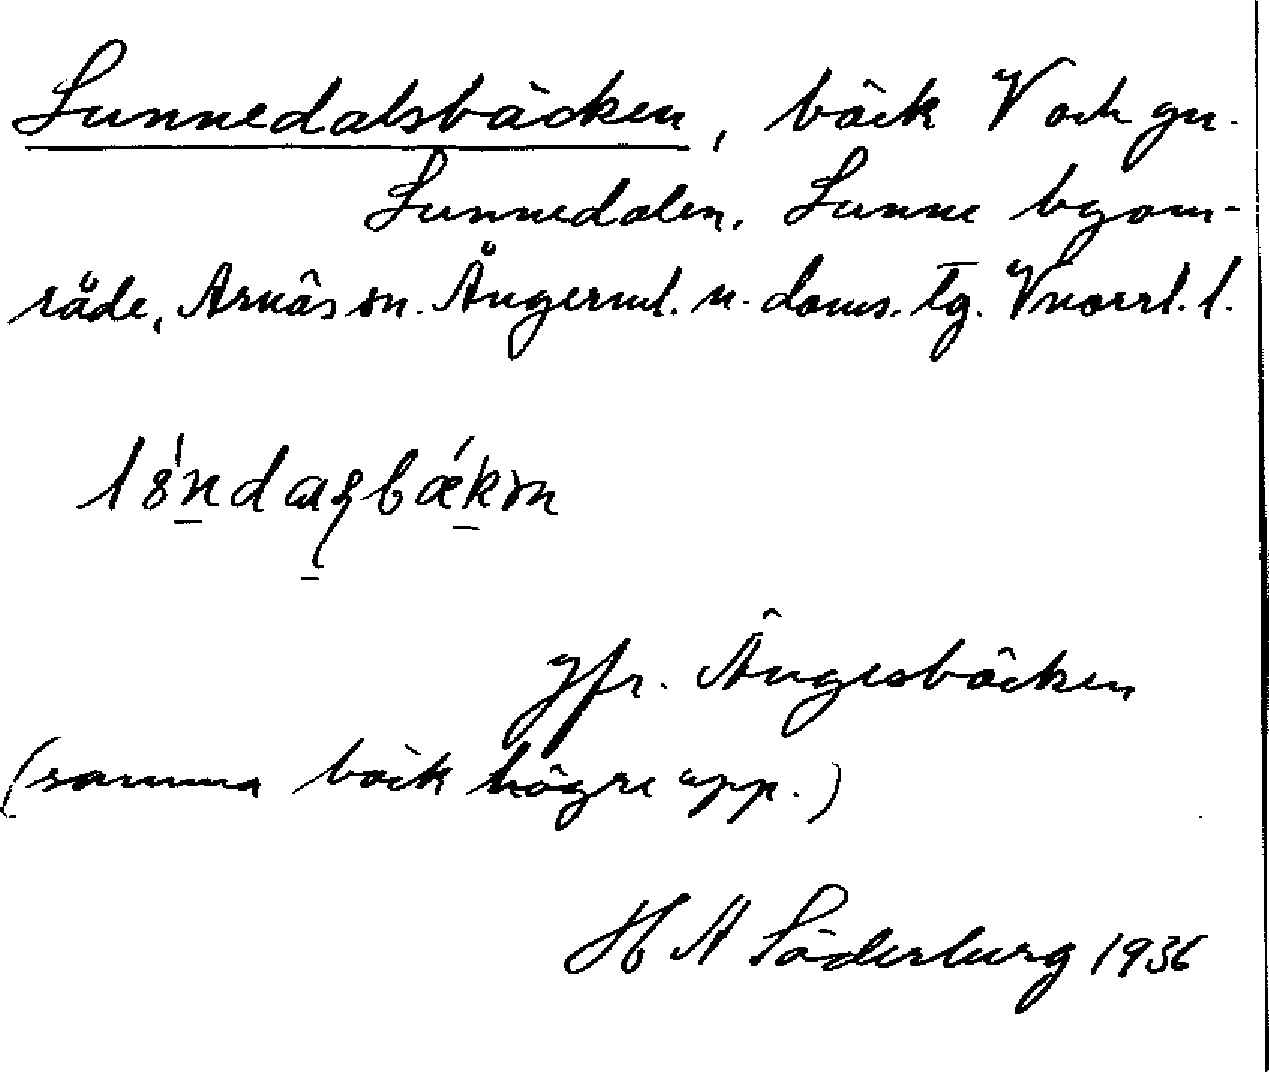 Sunnedalsbäcken, bäck V och gm.
Sunnedalen, Sunne byom-
råde, Arnäs sn. Ångerml. n. doms. tg. Vnorrl. l.
Jfr. Ängesbäcken
(samma bäck högre upp.)
H A Söderberg 1936